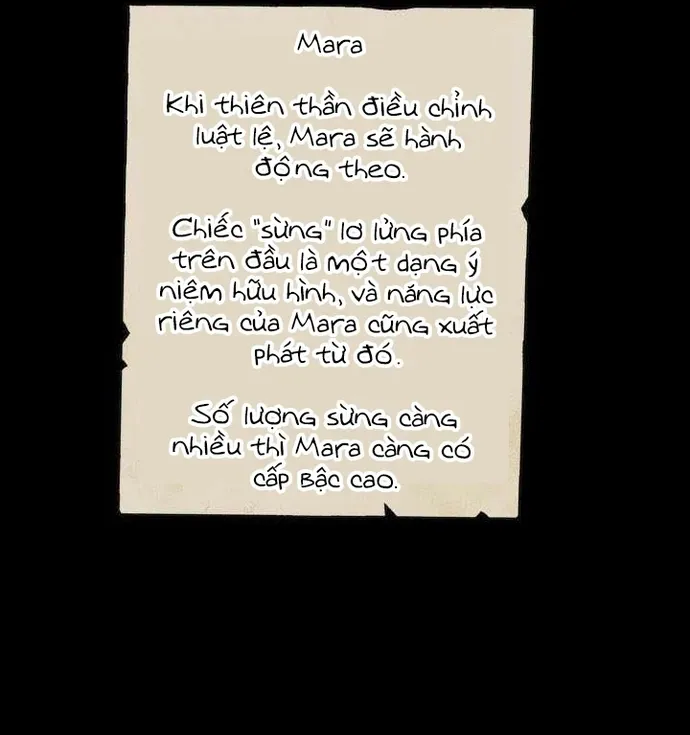 Mara
Khi thiên thần điều chỉnh
luật lệ, Mara sẽ hành
động theo.
Chiếc "sừng" lơ lửng phía
trên đầu là một dạng ý
niệm hữu hình, và năng lực
riêng của Mara cũng xuất
phát từ đó.
Số lượng sừng càng
nhiều thì Mara càng có
cấp bậc cao.